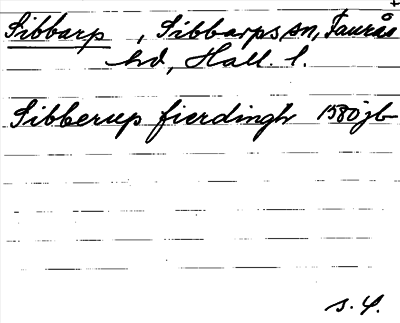 Sibbarp, Sibbarps sn, Faurås
hd, Hall. l.
Sibberup fierdingh 1580 jb
s. 4.